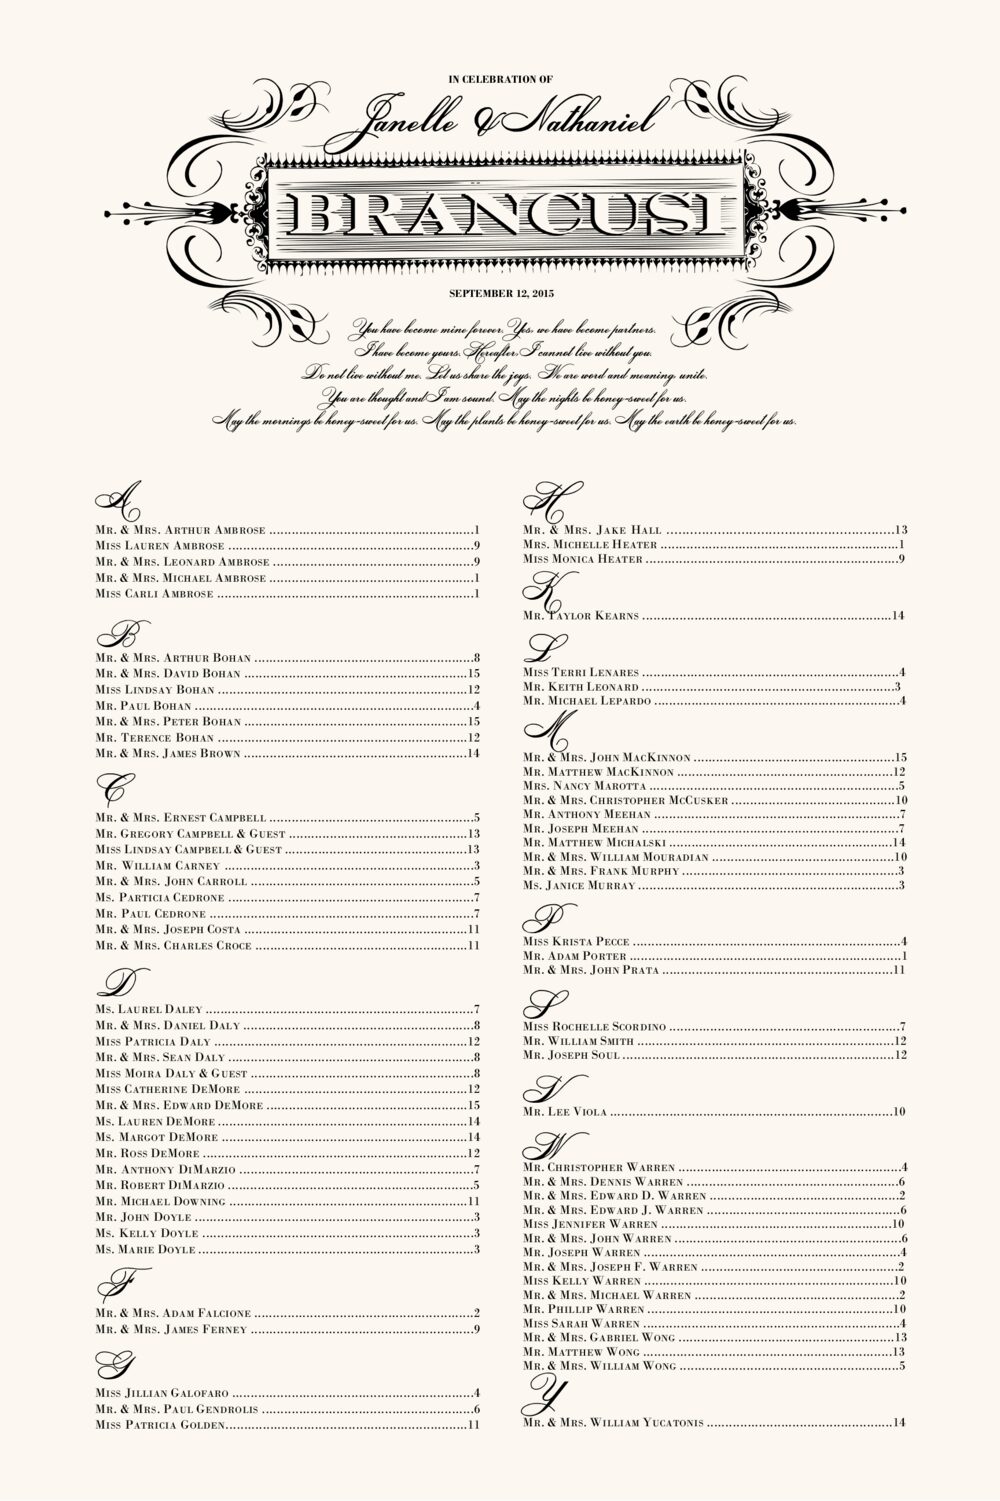 IN CELEBRATION OF
Janelle & Nathaniel
BRANCUSI
SEPTEMBER 12, 2015
You have become mine forever. Yes, we have become partners.
I have become yours. Hereafter, I cannot live without you.
Do not live without me. Let us share the joys. We are word and meaning, unite.
You are thought and I am sound. May the nights be honey-sweet for us.
May the mornings be honey-sweet for us. May the plants be honey-sweet for us. May the earth be honey-sweet for us.
A
Mr. & Mrs. Arthur Ambrose ........ 1
Miss Lauren Ambrose ........ 9
Mr. & Mrs. Leonard Ambrose ........ 9
Mr. & Mrs. Michael Ambrose ........ 1
Miss Carli Ambrose ........ 1
B
Mr. & Mrs. Arthur Bohan ........ 8
Mr. & Mrs. David Bohan ........ 15
Miss Lindsay Bohan ........ 12
Mr. Paul Bohan ........ 4
Mr. & Mrs. Peter Bohan ........ 15
Mr. Terence Bohan ........ 12
Mr. & Mrs. James Brown ........ 14
C
Mr. & Mrs. Ernest Campbell ........ 5
Mr. Gregory Campbell & Guest ........ 13
Miss Lindsay Campbell & Guest ........ 13
Mr. William Carney ........ 3
Mr. & Mrs. John Carroll ........ 5
Ms. Particia Cedrone ........ 7
Mr. Paul Cedrone ........ 7
Mr. & Mrs. Joseph Costa ........ 11
Mr. & Mrs. Charles Croce ........ 11
D
Ms. Laurel Daley ........ 7
Mr. & Mrs. Daniel Daly ........ 8
Miss Patricia Daly ........ 12
Mr. & Mrs. Sean Daly ........ 8
Miss Moira Daly & Guest ........ 8
Miss Catherine DeMore ........ 12
Mr. & Mrs. Edward DeMore ........ 15
Ms. Lauren DeMore ........ 14
Ms. Margot DeMore ........ 14
Mr. Ross DeMore ........ 12
Mr. Anthony DiMarzio ........ 7
Mr. Robert DiMarzio ........ 5
Mr. Michael Downing ........ 11
Mr. John Doyle ........ 3
Ms. Kelly Doyle ........ 3
Ms. Marie Doyle ........ 3
F
Mr. & Mrs. Adam Falcione ........ 2
Mr. & Mrs. James Ferney ........ 9
G
Miss Jillian Galofaro ........ 4
Mr. & Mrs. Paul Gendrolis ........ 6
Miss Patricia Golden ........ 11
H
Mr. & Mrs. Jake Hall ........ 13
Mrs. Michelle Heater ........ 1
Miss Monica Heater ........ 9
K
Mr. Taylor Kearns ........ 14
L
Miss Terri Lenares ........ 4
Mr. Keith Leonard ........ 3
Mr. Michael Lepardo ........ 4
M
Mr. & Mrs. John MacKinnon ........ 15
Mr. Matthew MacKinnon ........ 12
Mrs. Nancy Marotta ........ 5
Mr. & Mrs. Christopher McCusker ........ 10
Mr. Anthony Meehan ........ 7
Mr. Joseph Meehan ........ 7
Mr. Matthew Michalski ........ 14
Mr. & Mrs. William Mouradian ........ 10
Mr. & Mrs. Frank Murphy ........ 3
Ms. Janice Murray ........ 3
P
Miss Krista Pecce ........ 4
Mr. Adam Porter ........ 1
Mr. & Mrs. John Prata ........ 11
S
Miss Rochelle Scordino ........ 7
Mr. William Smith ........ 12
Mr. Joseph Soul ........ 12
V
Mr. Lee Viola ........ 10
W
Mr. Christopher Warren ........ 4
Mr. & Mrs. Dennis Warren ........ 6
Mr. & Mrs. Edward D. Warren ........ 2
Mr. & Mrs. Edward J. Warren ........ 6
Miss Jennifer Warren ........ 10
Mr. & Mrs. John Warren ........ 6
Mr. Joseph Warren ........ 4
Mr. & Mrs. Joseph F. Warren ........ 2
Miss Kelly Warren ........ 10
Mr. & Mrs. Michael Warren ........ 2
Mr. Phillip Warren ........ 10
Miss Sarah Warren ........ 4
Mr. & Mrs. Gabriel Wong ........ 13
Mr. Matthew Wong ........ 13
Mr. & Mrs. William Wong ........ 5
Y
Mr. & Mrs. William Yucatonis ........ 14